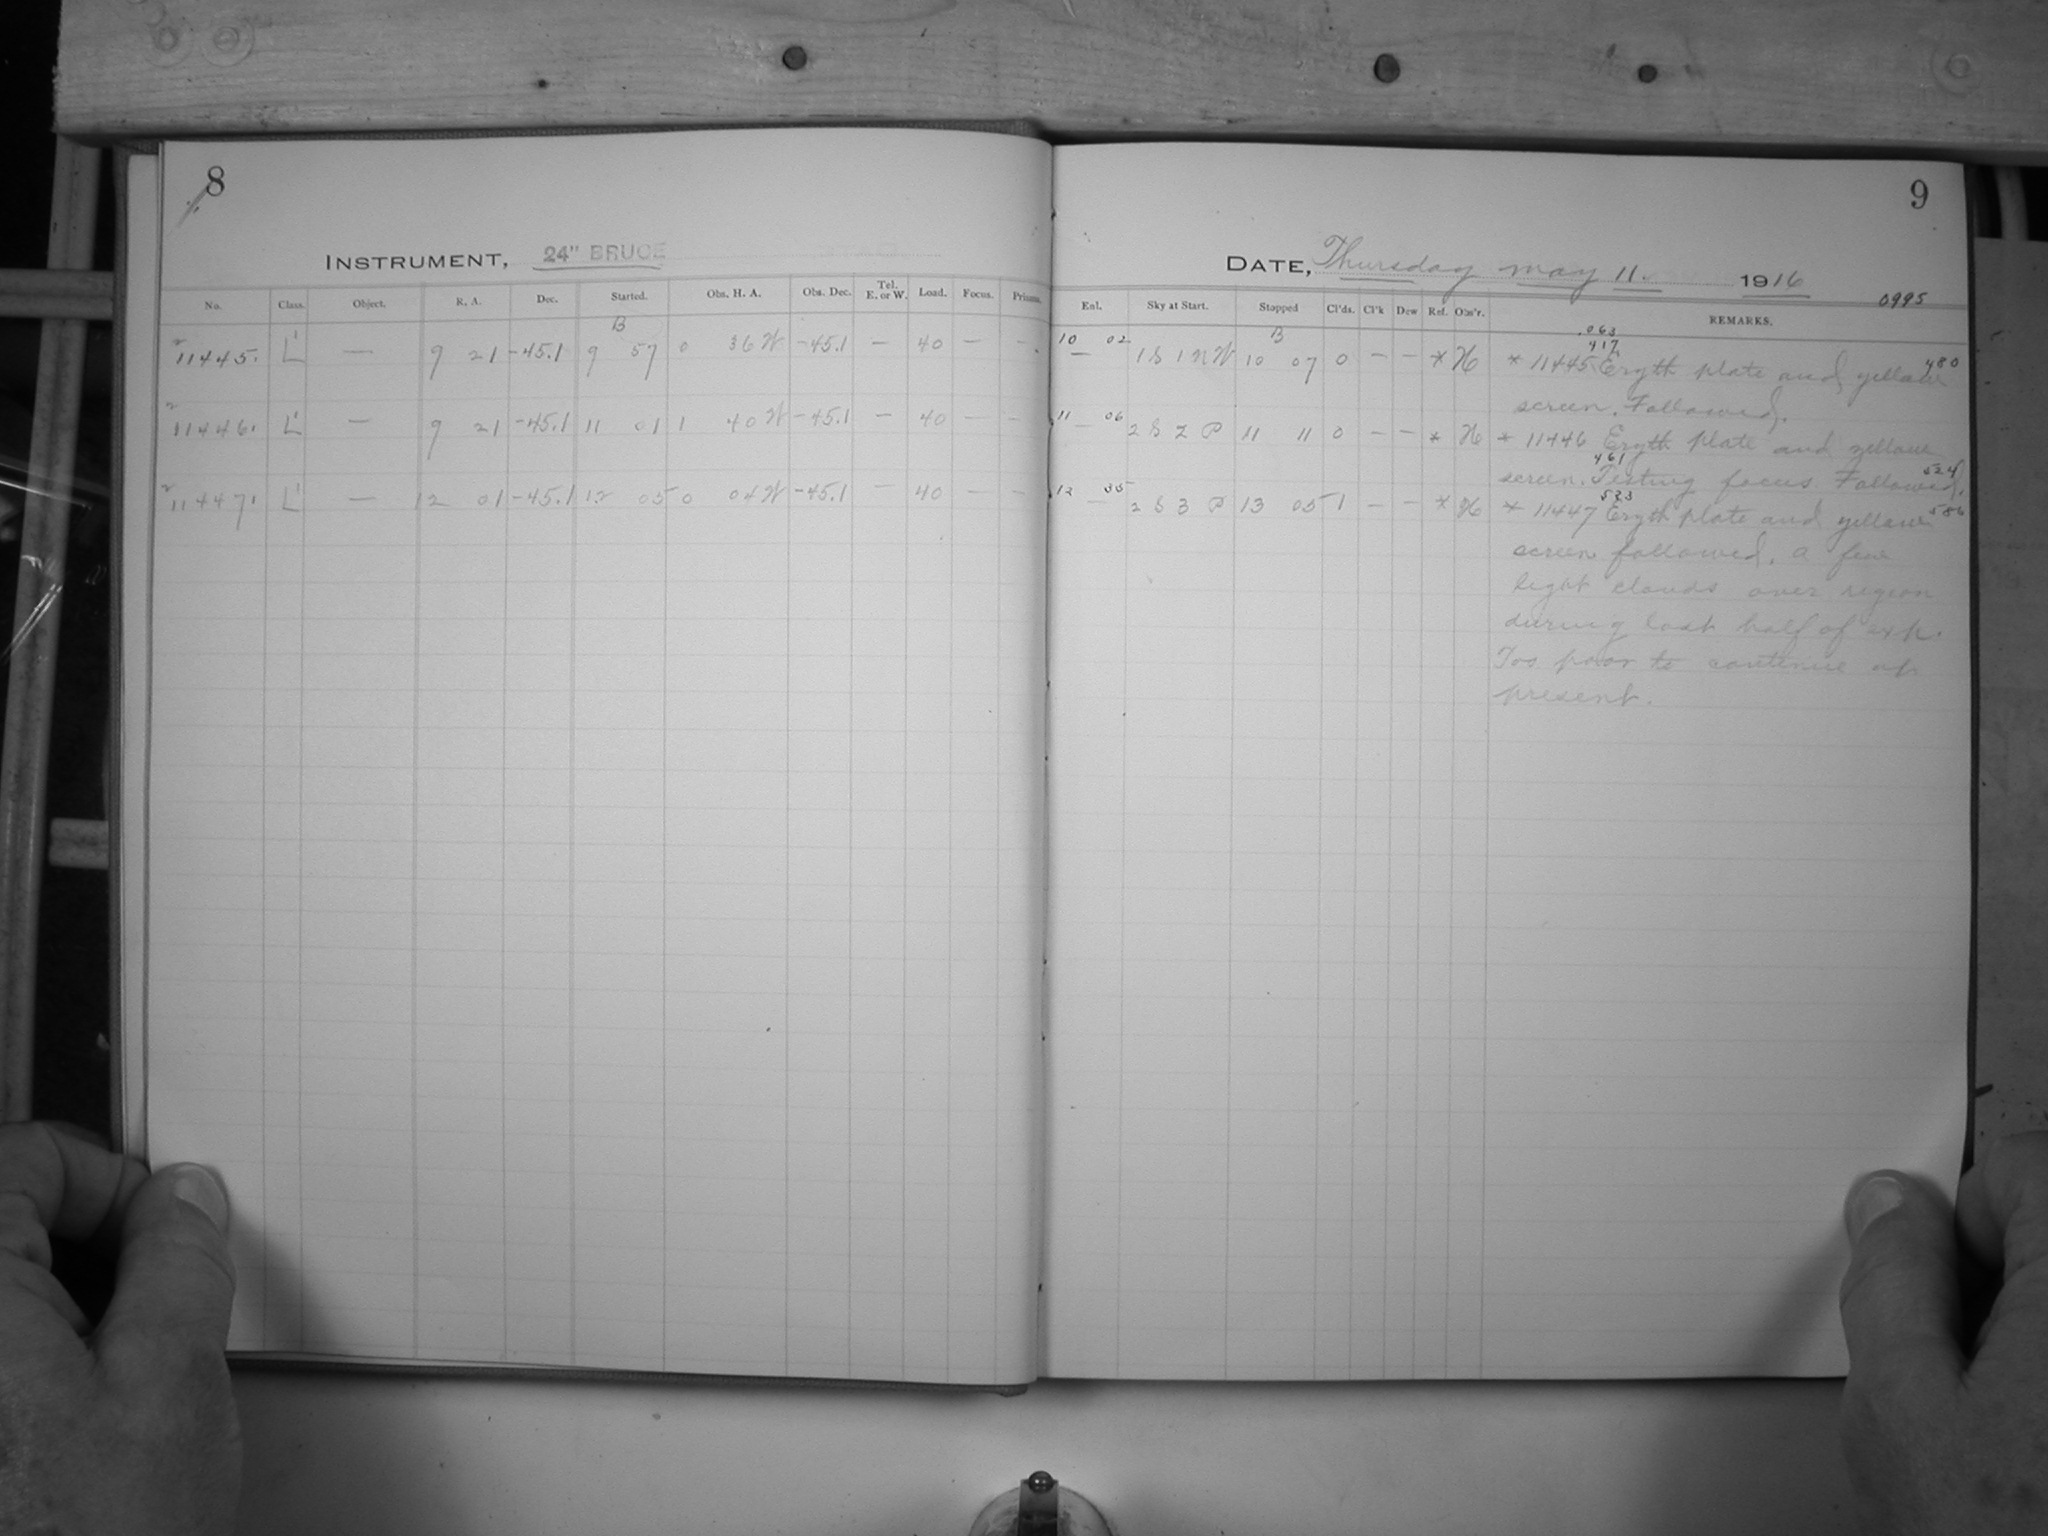 8
INSTRUMENT, 24" BRUCE
No. Class. Object. R. A. Dec. Started. Obs. H. A. Obs. Dec. Tel. E. or W. Load. Focus. Prisms.
B
11445. L' — 9 21 -45.1 9 57 0 36 W -45.1 — 40 — -
11446. L' — 9 21 -45.1 11 01 1 40 W -45.1 — 40 — -
11447. L' — 12 01 -45.1 12 05 0 04 W -45.1 — 40 — -
9
DATE, Thursday May 11. 1916
0995
Enl. Sky at Start. Stopped Cl'ds. Cl'k Dew Ref. Obs'r. REMARKS.
B .063
10 02 417 480
— 1 S 1 N W 10 07 0 — — * H * 11445 Eryth plate and yellow
screen. Followed.
11 06
— 2 S 2 P 11 11 0 — — * H * 11446 Eryth plate and yellow
461 524
screen. Testing focus. Followed.
12 35 523 586
— 2 S 3 P 13 05 1 — — * H * 11447 Eryth plate and yellow
screen followed. A few
light clouds over region
during last half of exp.
Too poor to continue at
present.